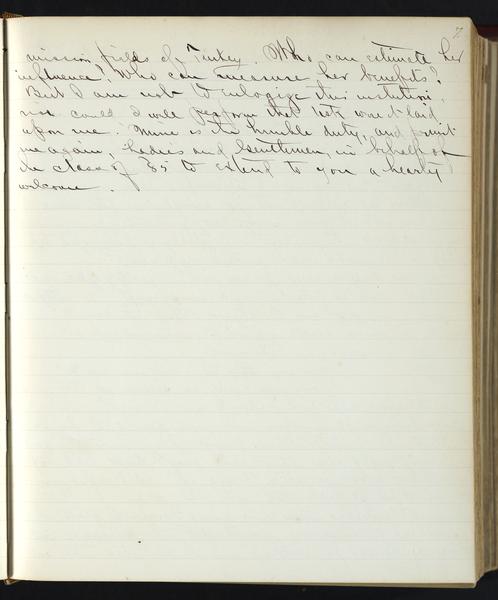 7
mission fields of Turkey. Who can estimate her
influence? Who can measure her benefits?
But I am not to eulogize this institution,
nor could I well perform that task were it laid
upon me. Mine is the humble duty, and permit
me again, Ladies and Gentlemen, in behalf of
the class of '85 to extend to you a hearty
welcome.